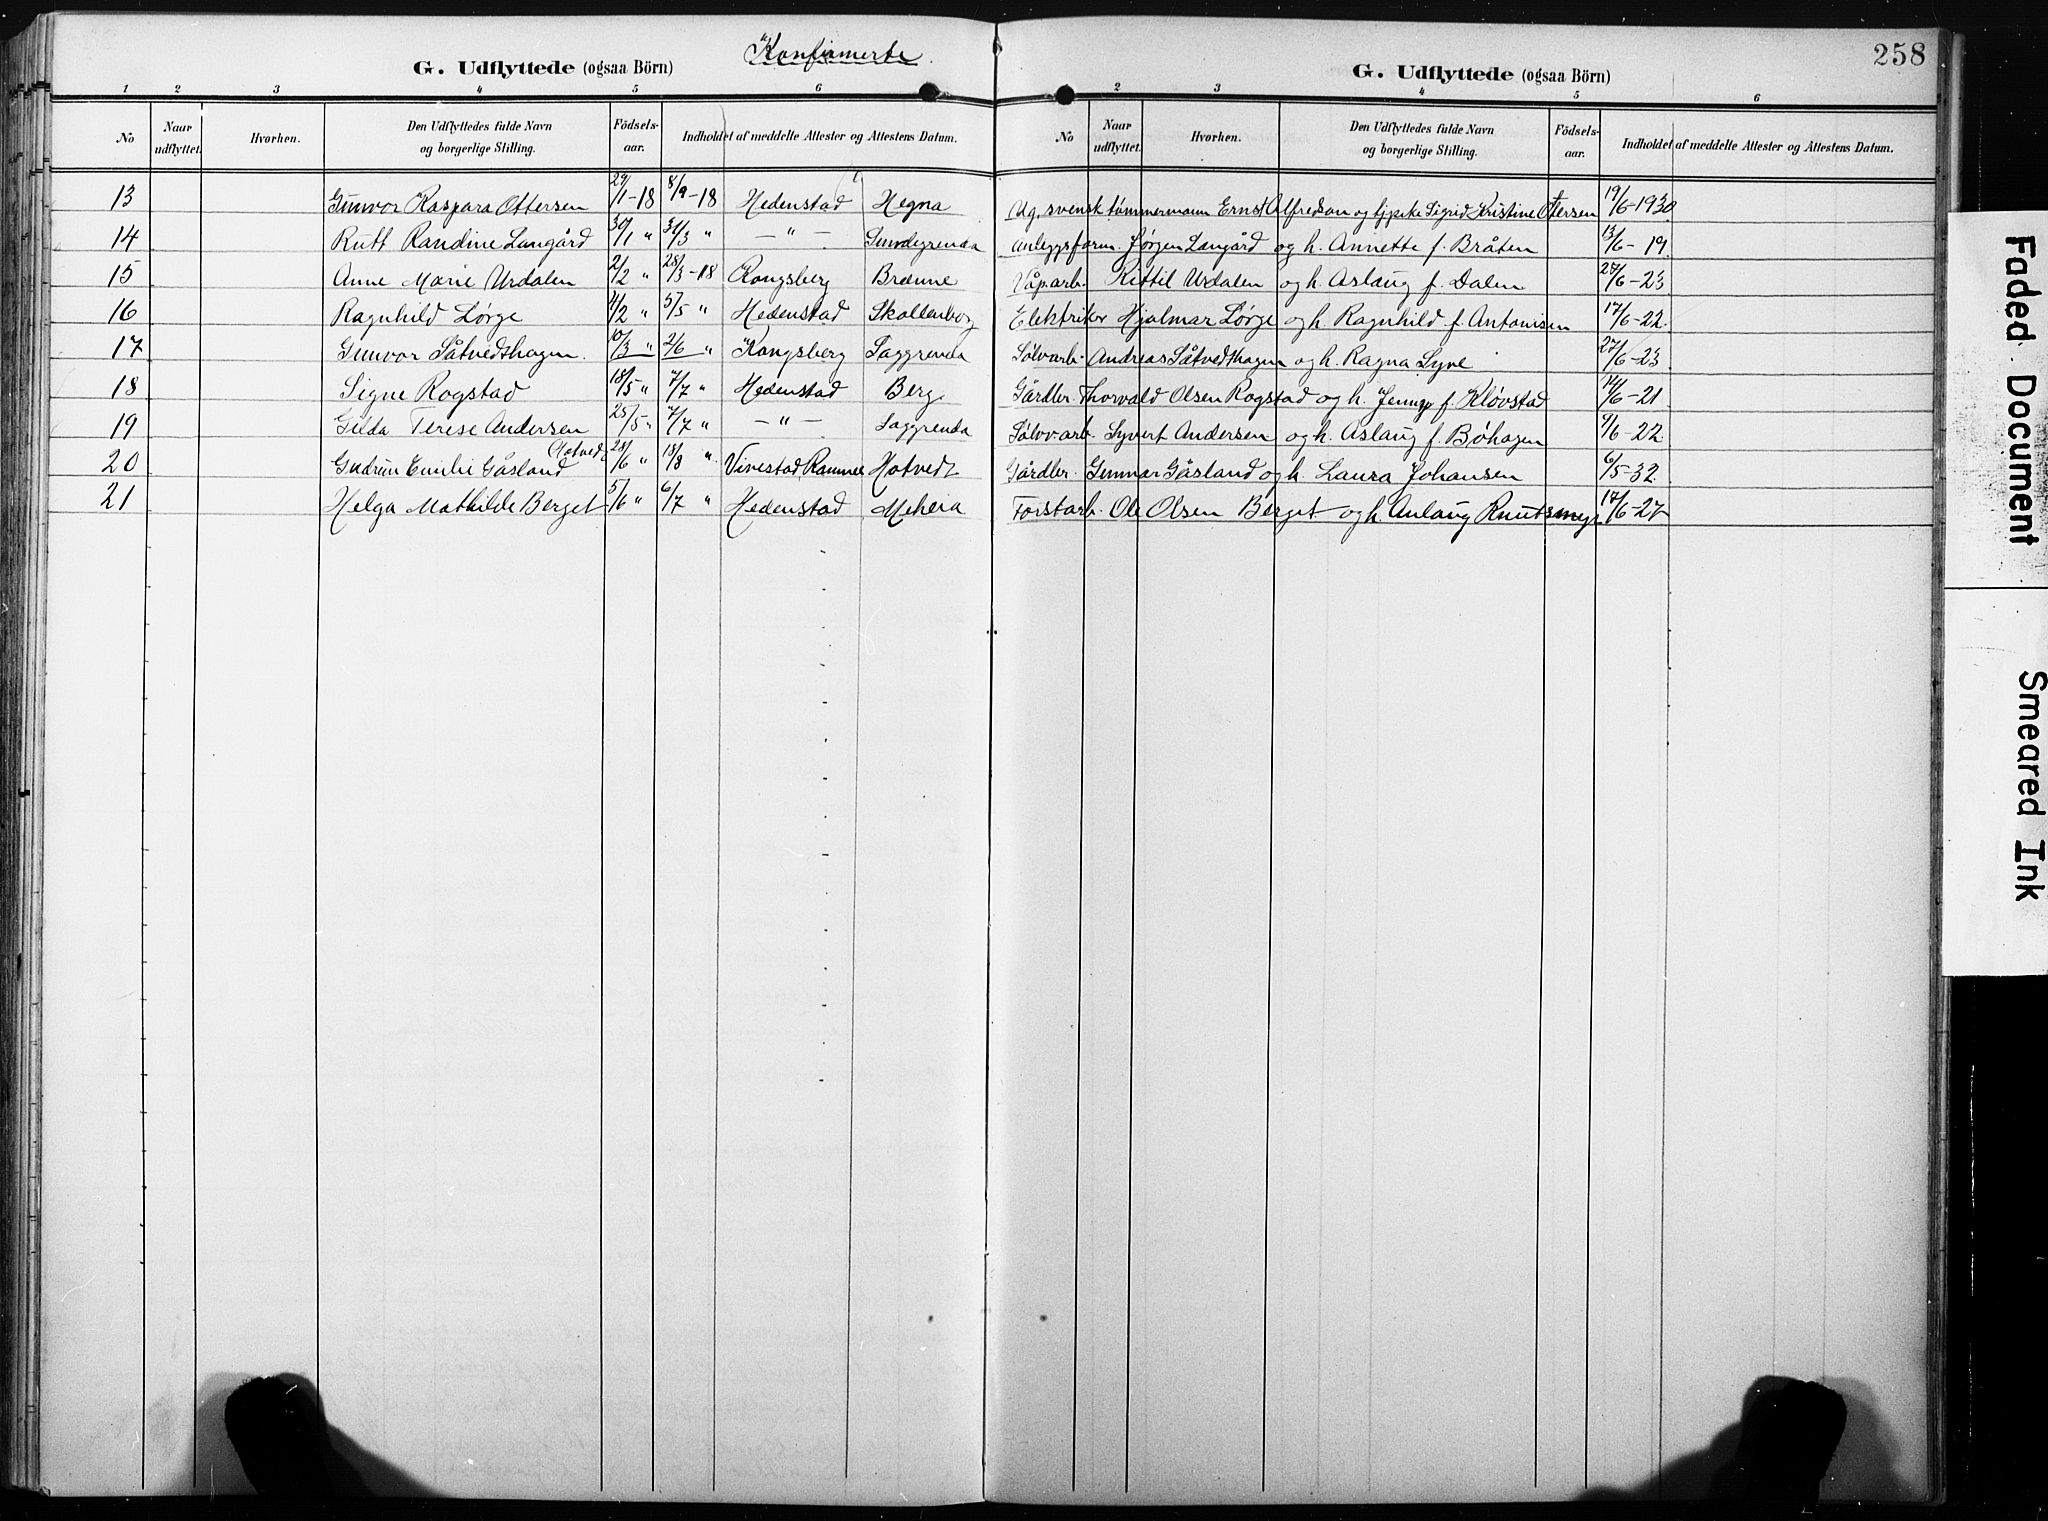 "Konfirmerte
G. Udflyttede (ogsaa Börn)
G. Udflyttede (ogsaa Börn)
258
1 2 3 4 5 6
2 3 4 5 6
No Naar udflyttet. Hvorhen. Den Udflyttedes fulde Navn og borgerlige Stilling. Födsels-aar. Indholdet af meddelte Attester og Attestens Datum.
No Naar udflyttet. Hvorhen. Den Udflyttedes fulde Navn og borgerlige Stilling. Födsels-aar. Indholdet af meddelte Attester og Attestens Datum.
13 Gunvor Kaspara Ottersen 29/1-18 8/9-18 Hedenstad Hegna Ug. svensk tømmermann Ernst Alfredson og tjpike Sigrid Kristine Ottersen 19/6-1930
14 Rutt Randine Langård 30/1 " 31/3 " -"- Jondegrenda Anleggsform. Jørgen Langård og h. Annette f. Bråten 13/6-19.
15 Anne Marie Urdalen 2/2 " 28/3-18 Kongsberg Brænne Våparb. Kittil Urdalen og h. Aslaug f. Dalen 27/6-23
16 Ragnhild Lørge 4/2 " 5/5 " Hedenstad Skollenborg Elektriker Hjalmar Lørge og h. Ragnhild f. Antonisen 17/6-22.
17 Gunvor Såtvedthagen. 10/3 " 2/6 " Kongsberg Saggrenda Sølvarb. Andreas Såtvedthagen og h. Ragna Lyve 27/6-23.
18 Signe Rogstad 18/5 " 7/7 " Hedenstad Berg Gårdbr. Thorvald Olsen Rogstad og h. Jenny f. Kløvstad 14/6-21
19 Gilda Terese Andersen 25/5 " 7/7 " -"- Saggrenda Sølvvarb. Syvert Andersen og h. Aslaug f. Bøhagen 9/6-22
20 Gudrun Emilie Gåsland Hotvedt 28/6 " 18/8 " Vivestad Ramnes Hotvedt Gårdbr. Gunnar Gåsland og h. Laura Johansen 6/5-32.
21 Helga Mathilde Berget 5/6 " 6/7 " Hedenstad Meheia Forstarb. Ole Olsen Berget og h. Anlaug Knutsmyr 17/6-27
Faded Document
Smeared Ink